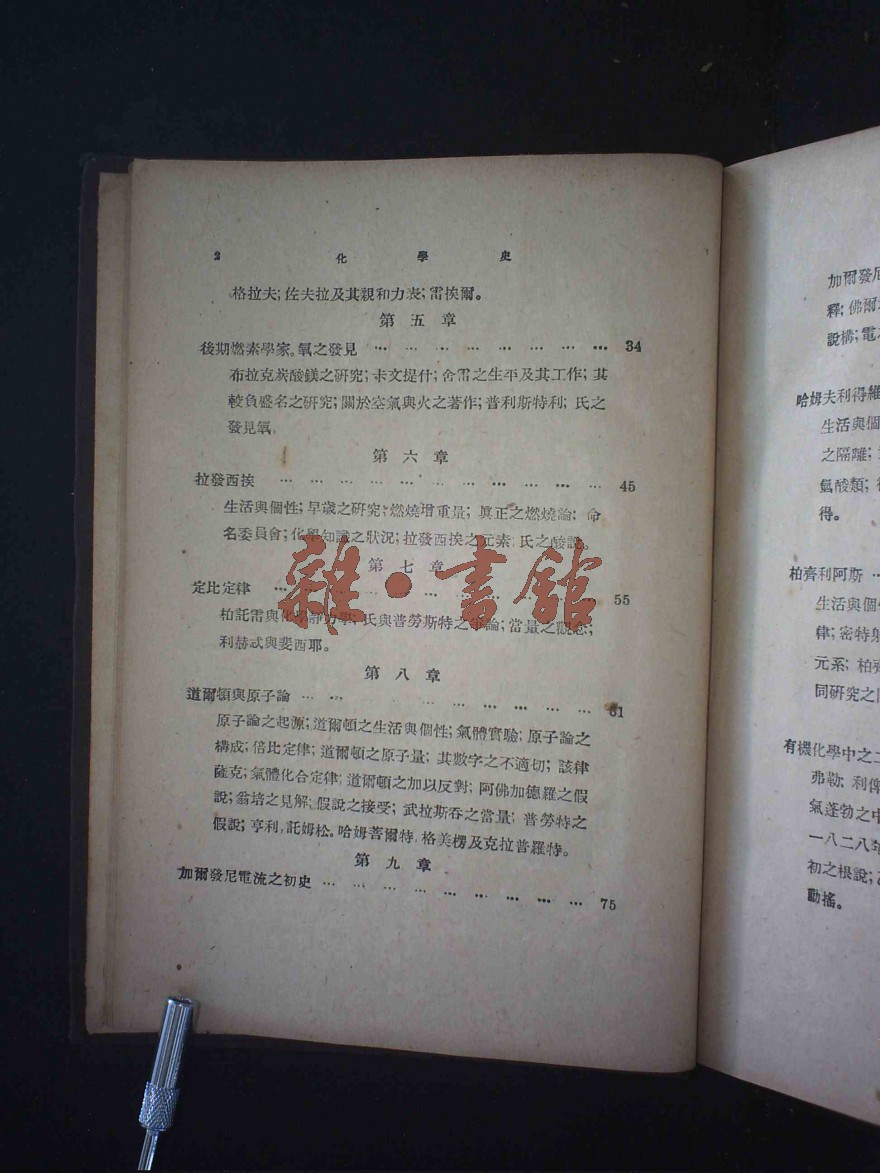 2 化學史
格拉夫;佐夫拉及其親和力表;雷挨爾。
第五章
後期燃素學家。氧之發見 … … … … … … … … 34
布拉克炭酸鎂之硏究;卡文提什;舍雷之生平及其工作;其
較負盛名之硏究;關於空氣與火之著作;普利斯特利;氏之
發見氧。
第六章
拉發西挨 … … … … … … … … … … … 45
生活與個性;早歲之硏究;燃燒增重量;眞正之燃燒論;命
名委員會;化學知識之狀況;拉發西挨之元素;氏之酸說。
第七章
定比定律 … … … … … … … 55
柏託雷與化學靜力學;氏與普勞斯特之爭論;當量之觀念;
利赫忒與斐西耶。
第八章
道爾頓與原子論 … … … … … … … … … 61
原子論之起源;道爾頓之生活與個性;氣體實驗;原子論之
構成;倍比定律;道爾頓之原子量;其數字之不適切;該律
薩克;氣體化合定律;道爾頓之加以反對;阿佛加德羅之假
說;翁培之見解;假說之接受;武拉斯吞之當量;普勞特之
假說;亨利,託姆松。哈姆菩爾特,格美楞及克拉普羅特。
第九章
加爾發尼電流之初史 … … … … … … … … … 75
加爾發尼
釋;佛爾
說構;電
哈姆夫利得維
生活與個
之隔離;
氫酸類;
得。
柏齊利阿斯 …
生活與個
律;密特射
元系;柏齊
同硏究之
有機化學中之二
弗勒;利俾
氣蓬勃之中
一八二八年
初之根說;
動搖。
雜·書館